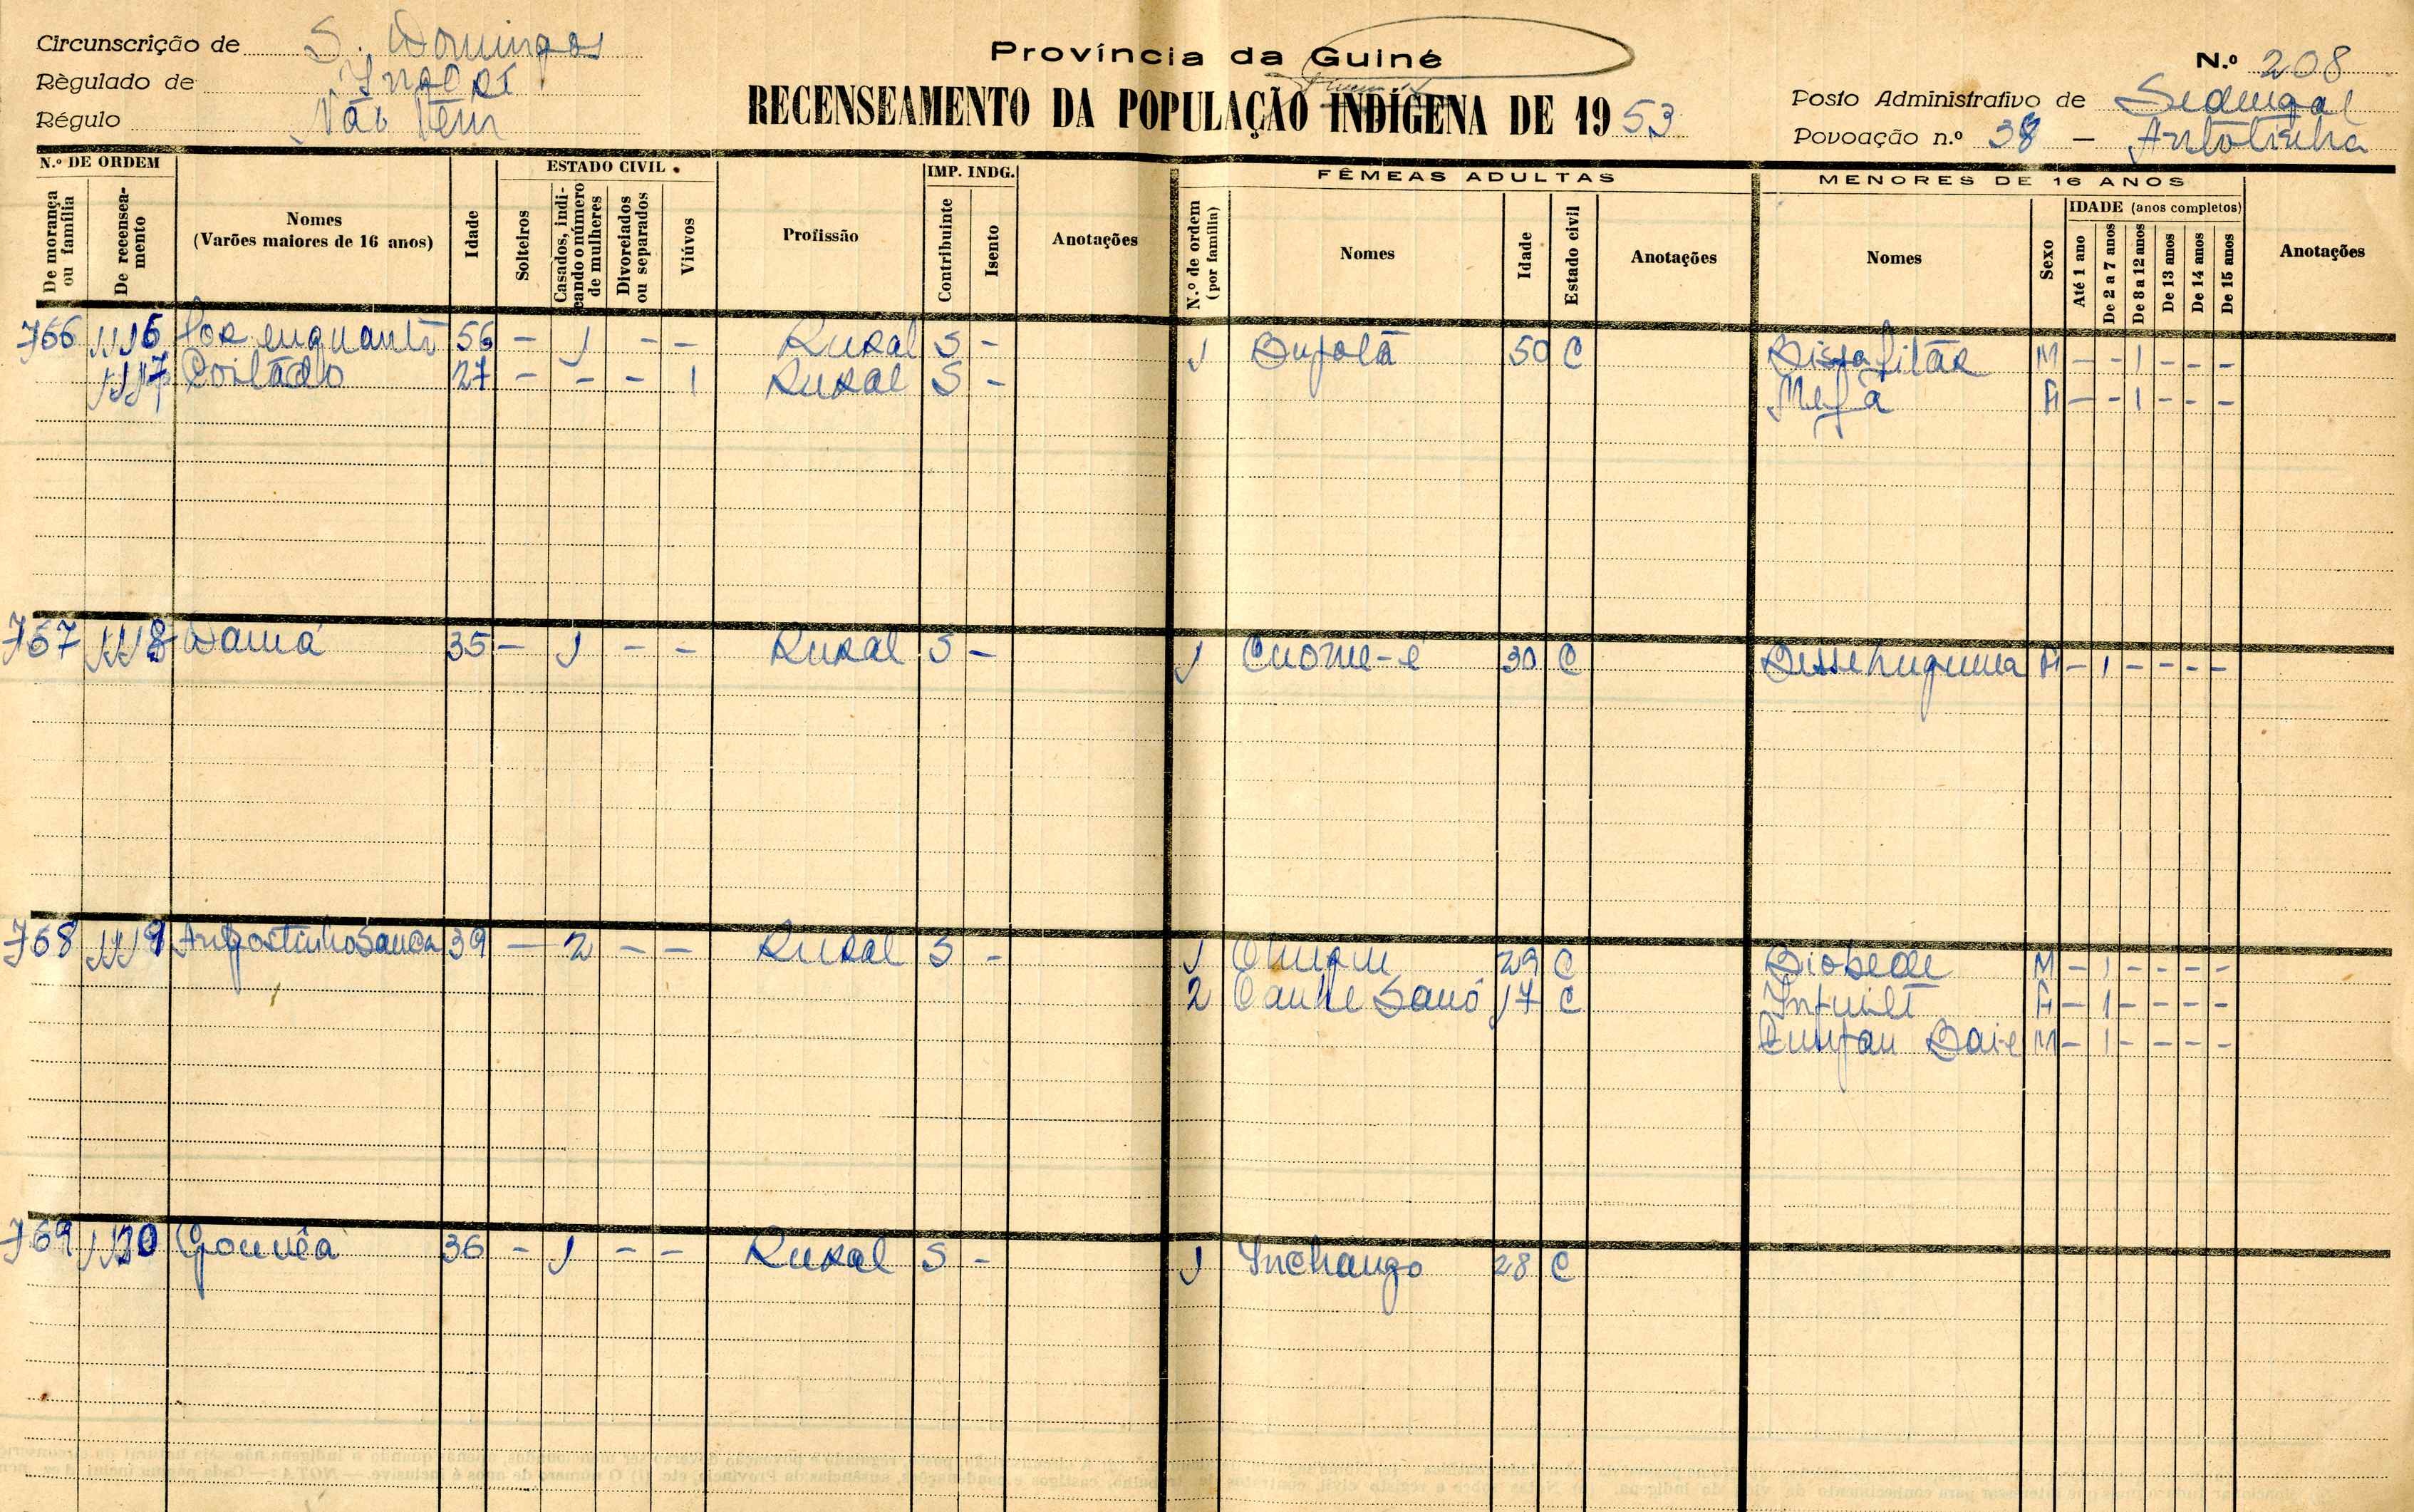 Circunscrição de S. Domingos
Règulado de
Régulo Não tem
Província da Guiné
RECENSEAMENTO DA POPULAÇÃO INDÍGENA DE 1953
N.º 208
Posto Administrativo de Sedengal
Povoação n.º 38 - Antotinha
N.º DE ORDEM
De morança ou família
De recenseamento
Nomes
(Varões maiores de 16 anos)
Idade
ESTADO CIVIL
Solteiros
Casados, indicando o número de mulheres
Divorciados ou separados
Viúvos
Profissão
IMP. INDG.
Contribuinte
Isento
Anotações
FÊMEAS ADULTAS
N.º de ordem (por família)
Nomes
Idade
Estado civil
Anotações
MENORES DE 16 ANOS
Nomes
Sexo
IDADE (anos completos)
Até 1 ano
De 2 a 7 anos
De 8 a 12 anos
De 13 anos
De 14 anos
De 15 anos
Anotações
766 1116 Por enquanto 56 - 1 - - Rural S - 1 Bupolã 50 C M - - 1 - - -
1117 Coitado 27 - - - 1 Rural S - Mefà - - 1 - - -
767 1118 Damá 35 - 1 - - Rural S - 1 Cuome-e 30 C - 1 - - - -
768 1119 39 - 2 - - Rural S - 1 29 C Biobede M - 1 - - - -
2 17 C - 1 - - - -
M - 1 - - - -
769 1120 Gouvêa 36 - 1 - - Rural S - 1 Inchango 28 C